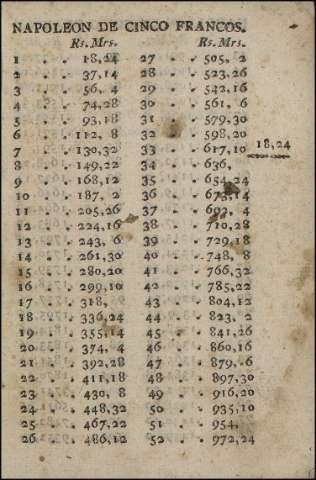 NAPOLEON DE CINCO FRANCOS.
Rs. Mrs. Rs. Mrs.
1 . . 18,24 27 . . 505, 2
2 . . 37,14 28 . . 523,26
3 . . 56, 4 29 . . 542,16
4 . . 74,28 30 . . 561, 6
5 . . 93,18 31 . . 579,30
6 . . 112, 8 32 . . 598,20
7 . . 130,32 33 . . 617,10 18,24
8 . . 149,22 34 . . 636,
9 . . 168,12 35 . . 654,24
10 . . 187, 2 36 . . 673,14
11 . . 205,26 37 . . 692, 4
12 . . 224,16 38 . . 710,28
13 . . 243, 6 39 . . 729,18
14 . . 261,30 40 . . 748, 8
15 . . 280,20 41 . . 766,32
16 . . 299,10 42 . . 785,22
17 . . 318, 43 . . 804,12
18 . . 336,24 44 . . 823, 2
19 . . 355,14 45 . . 841,26
20 . . 374, 4 46 . . 860,16
21 . . 392,28 47 . . 879, 6
22 . . 411,18 48 . . 897,30
23 . . 430, 8 49 . . 916,20
24 . . 448,32 50 . . 935,10
25 . . 467,22 51 . . 954,
26 . . 486,12 52 . . 972,24